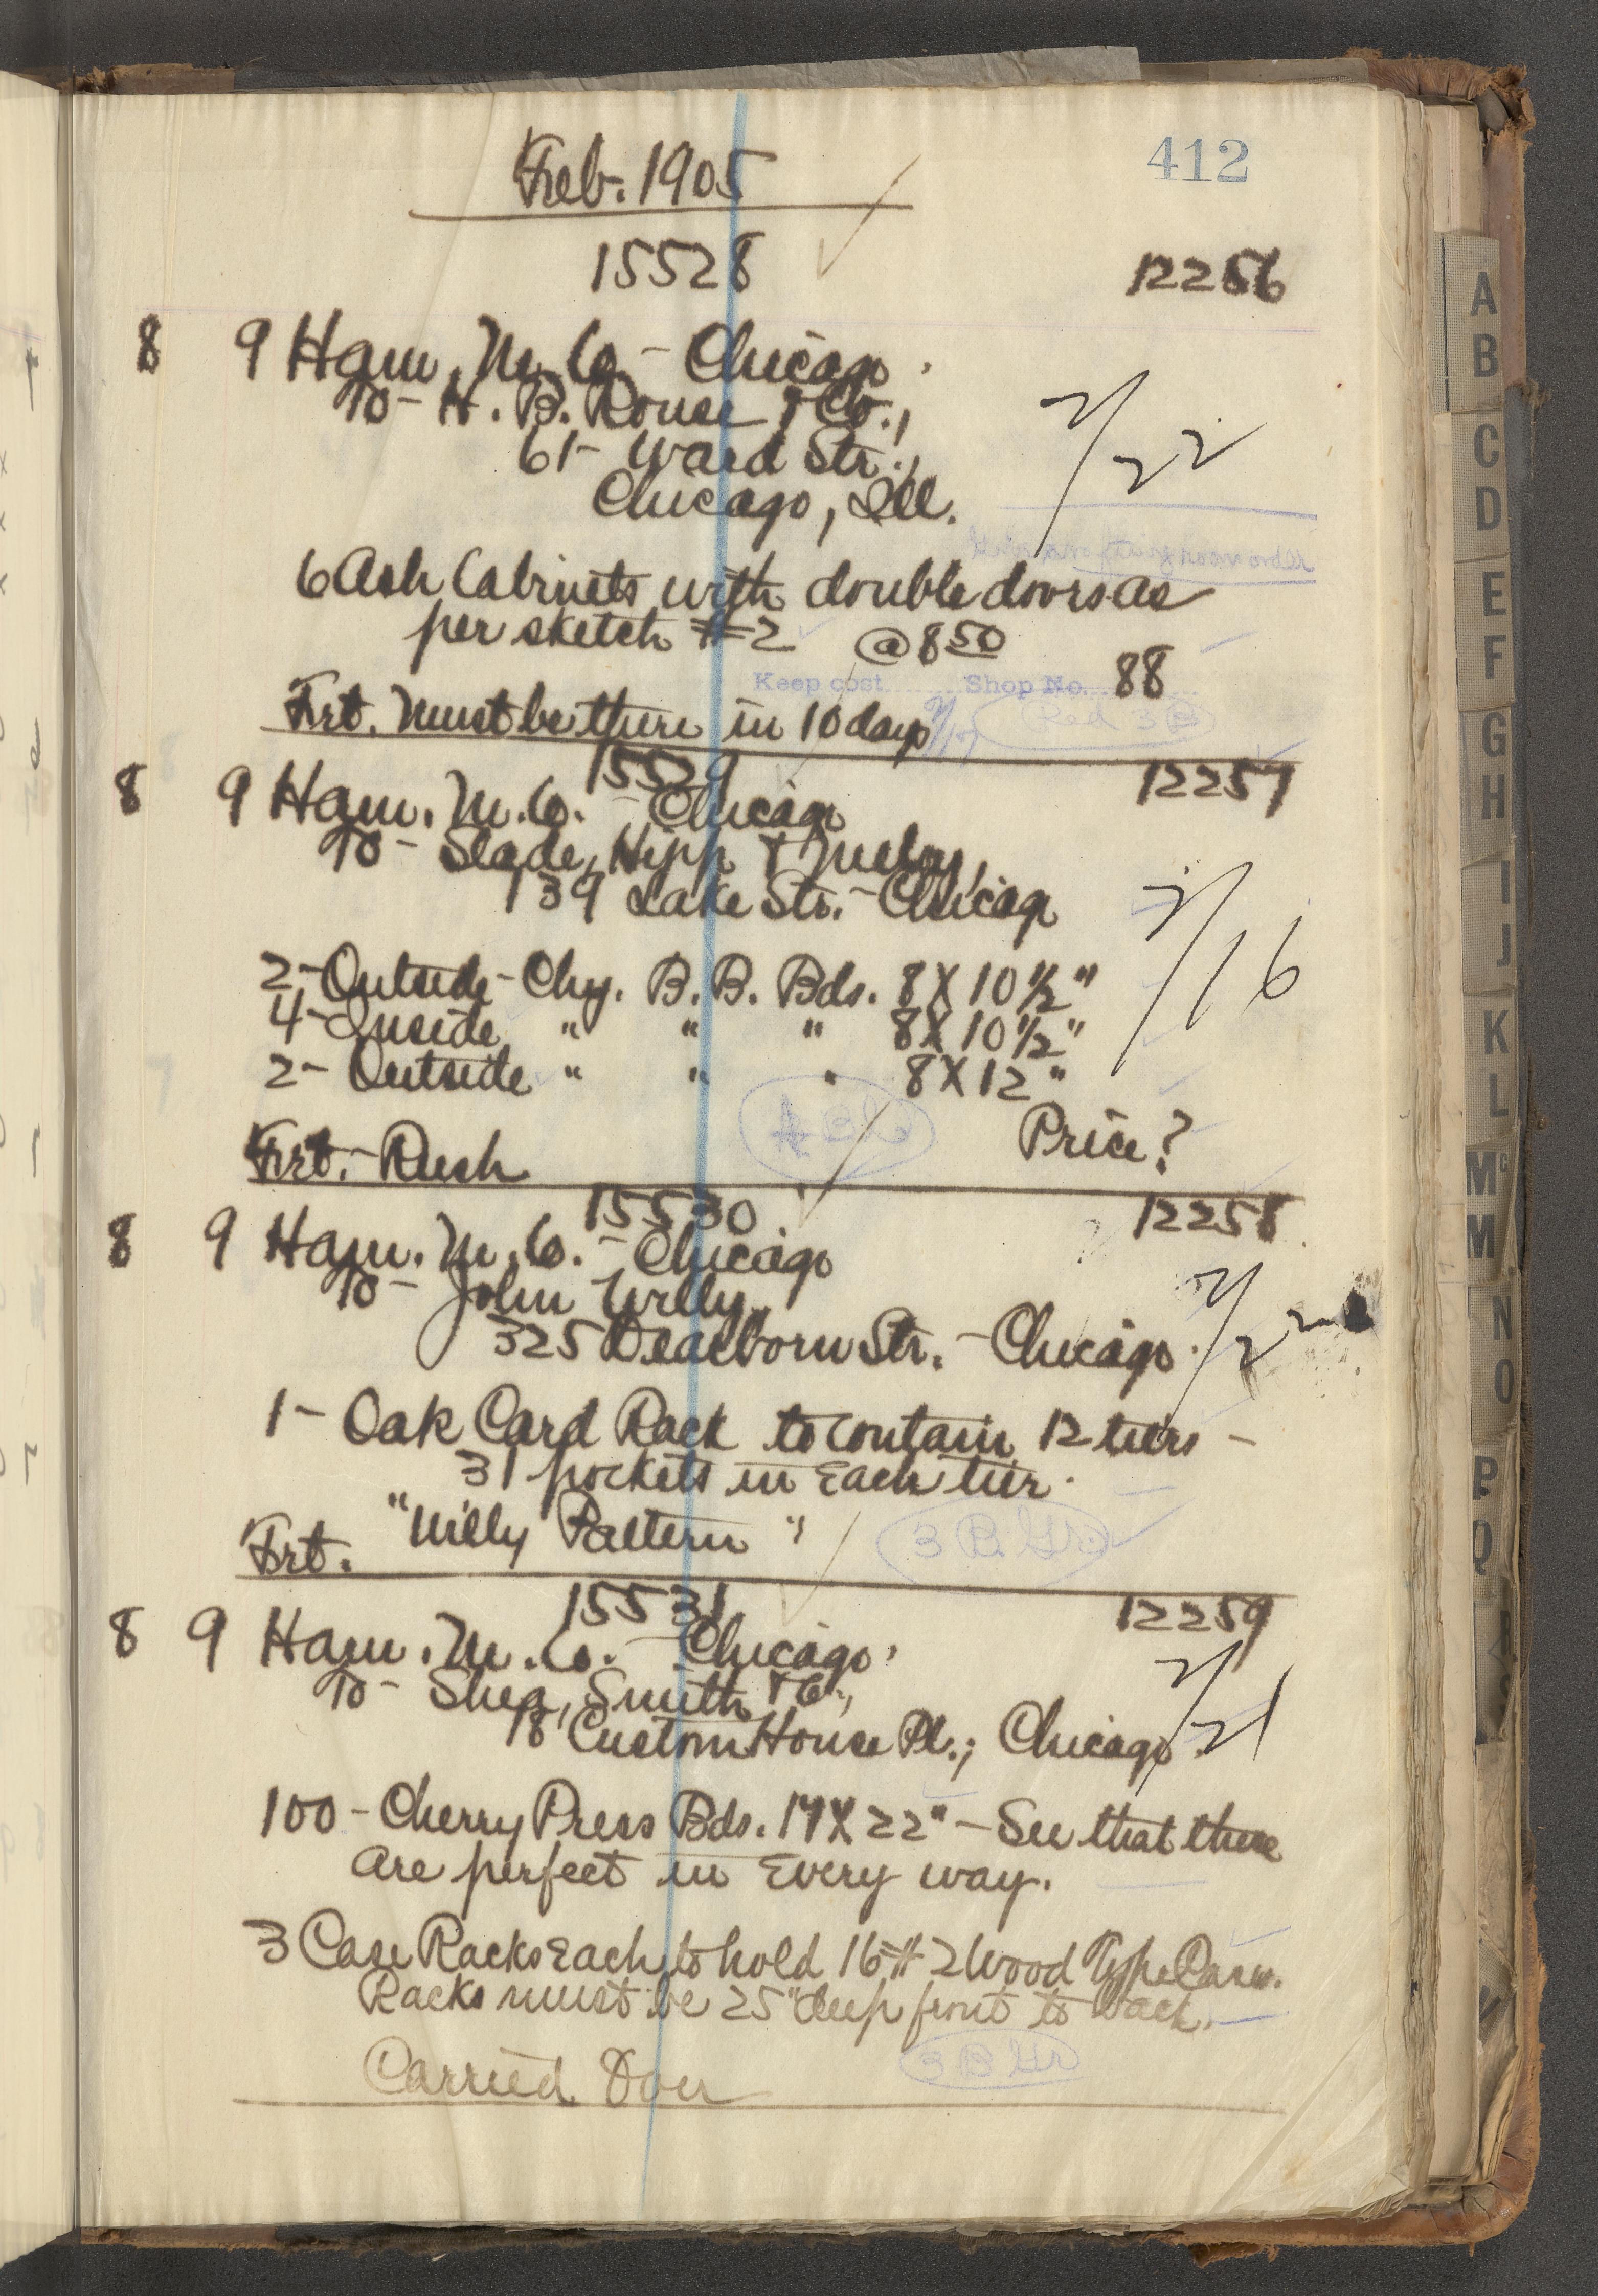 412
Feb. 1905
15528 12256
8 9 Ham. M. Co. - Chicago.
To - H. B. Rouse & Co.,
61 - Ward Str.,
Chicago, Ill.
2/22
6 Ash Cabinets with double doors as
per sketch #2 @ 8 50
Keep cost Shop No. 88
Frt. Must be there in 10 days 2/17 Red 3 B
15529 12257
8 9 Ham. M. Co. - Chicago
To - Slade, Hipp &
139 Lake Str. - Chicago
2/16
2 - Outside - Chy. B. B. Bds. 8 X 10 1/2"
4 - Inside " " " 8 X 10 1/2"
2 - Outside " " " 8 X 12"
Price?
Frt. - Rush
15530 12258
8 9 Ham. M. Co. - Chicago
To - John Willy,
325 Dearborn Str. - Chicago.
2/22
1 - Oak Card Rack to contain 12 tiers -
31 pockets in Each tier.
"Willy Pattern"
Frt. 3 B. Gr.
15531 12259
8 9 Ham. M. Co. - Chicago.
To - Shea, Smith & Co.,
18 Custom House Pl.; Chicago.
2/21
100 - Cherry Press Bds. 17 X 22" - See that these
are perfect in Every way.
3 Case Racks Each to hold 16 # 2 Wood Type Cases.
Racks must be 25" deep front to back.
3 B Gr
Carried Over
A
B
C
D
E
F
G
H
I
J
K
L
Mc
M
N
O
P
Q